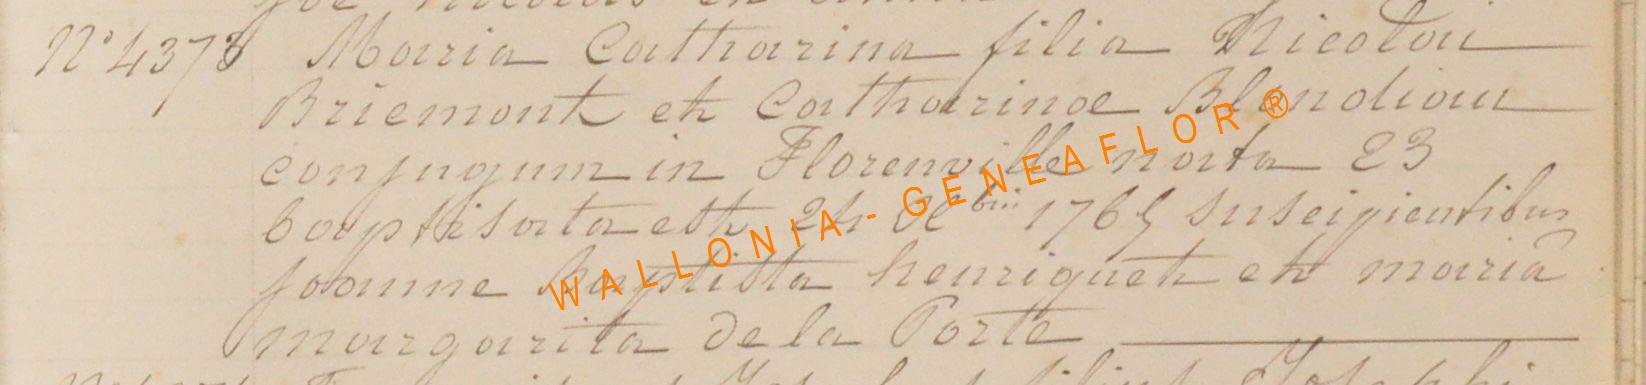 N° 4373 Maria Catharina filia Nicolai
Briemont et Catharinae Blondiau
conjugum in Florenville nata 23
baptisata est 24 Xbris 1765 suscipientibus
joanne baptista henriquet et maria
margarita de la Porte
WALLONIA-GENEAFLOR®